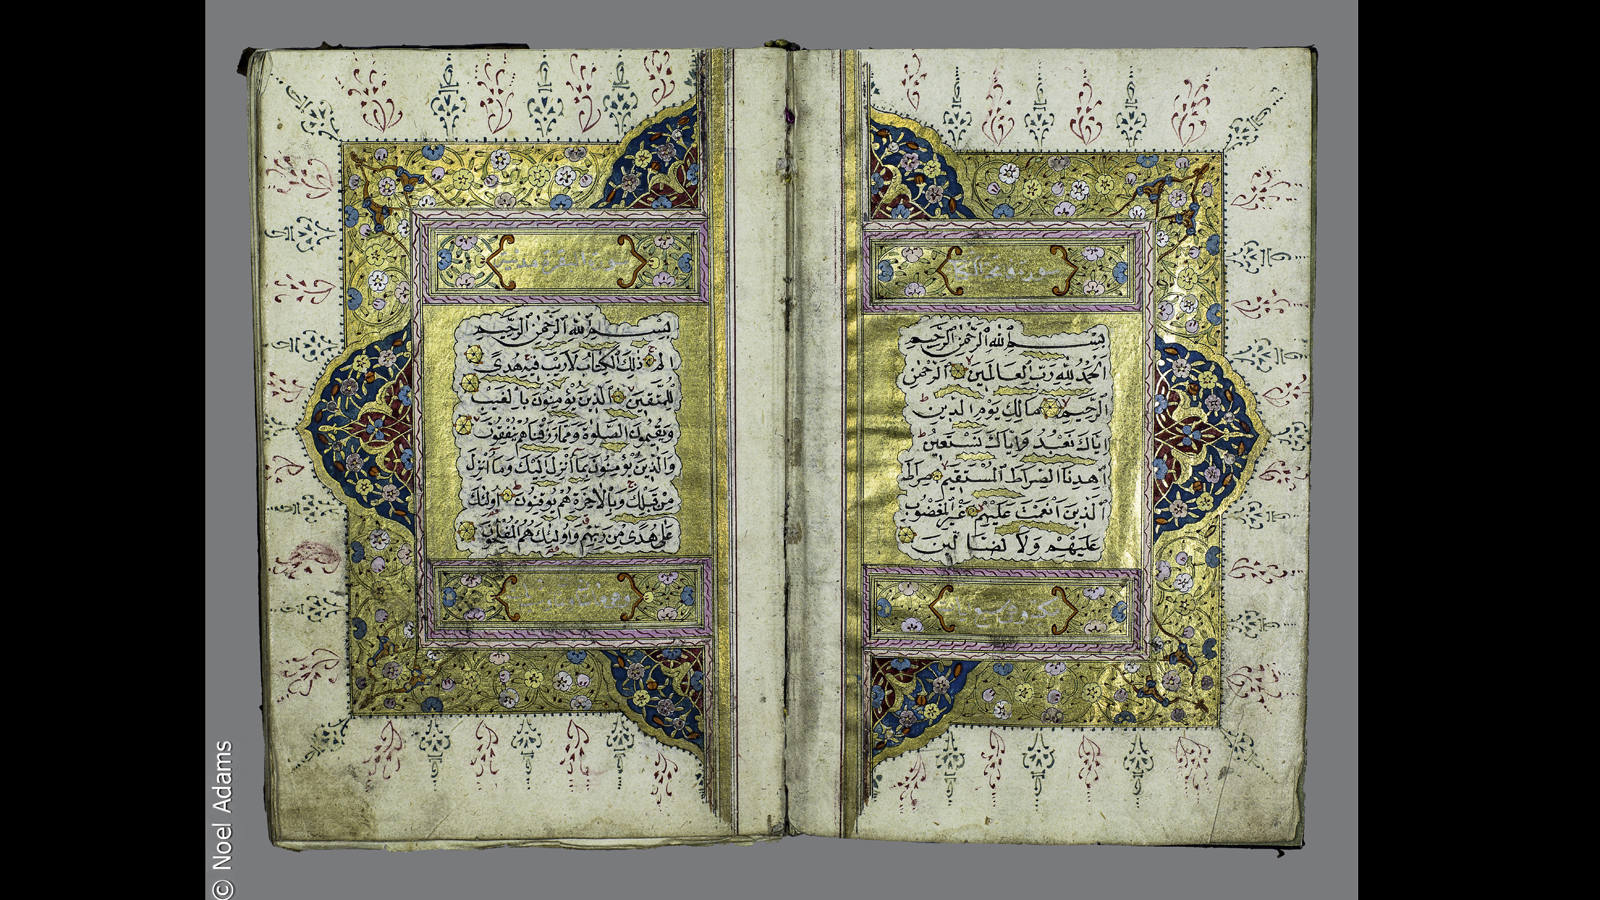 سورة فاتحة الكتاب
بِسْمِ اللهِ الرَّحْمٰنِ الرَّحِيمِ
اَلْحَمْدُ لِلّٰهِ رَبِّ الْعَالَمِينَ اَلرَّحْمٰنِ
الرَّحِيمِ مَالِكِ يَوْمِ الدِّينِ
اِيَّاكَ نَعْبُدُ وَاِيَّاكَ نَسْتَعِينُ
اِهْدِنَا الصِّرَاطَ الْمُسْتَقِيمَ صِرَاطَ
الَّذِينَ اَنْعَمْتَ عَلَيْهِمْ غَيْرِ الْمَغْضُوبِ
عَلَيْهِمْ وَلَا الضَّالِّينَ
سورة البقرة مدنية
بِسْمِ اللهِ الرَّحْمٰنِ الرَّحِيمِ
الم ذٰلِكَ الْكِتَابُ لَا رَيْبَ فِيهِ هُدًى
لِلْمُتَّقِينَ اَلَّذِينَ يُؤْمِنُونَ بِالْغَيْبِ
وَيُقِيمُونَ الصَّلٰوةَ وَمِمَّا رَزَقْنَاهُمْ يُنْفِقُونَ
وَالَّذِينَ يُؤْمِنُونَ بِمَا اُنْزِلَ اِلَيْكَ وَمَا اُنْزِلَ
مِنْ قَبْلِكَ وَبِالْاٰخِرَةِ هُمْ يُوقِنُونَ اُولٰئِكَ
عَلٰى هُدًى مِنْ رَبِّهِمْ وَاُولٰئِكَ هُمُ الْمُفْلِحُونَ
© Noel Adams